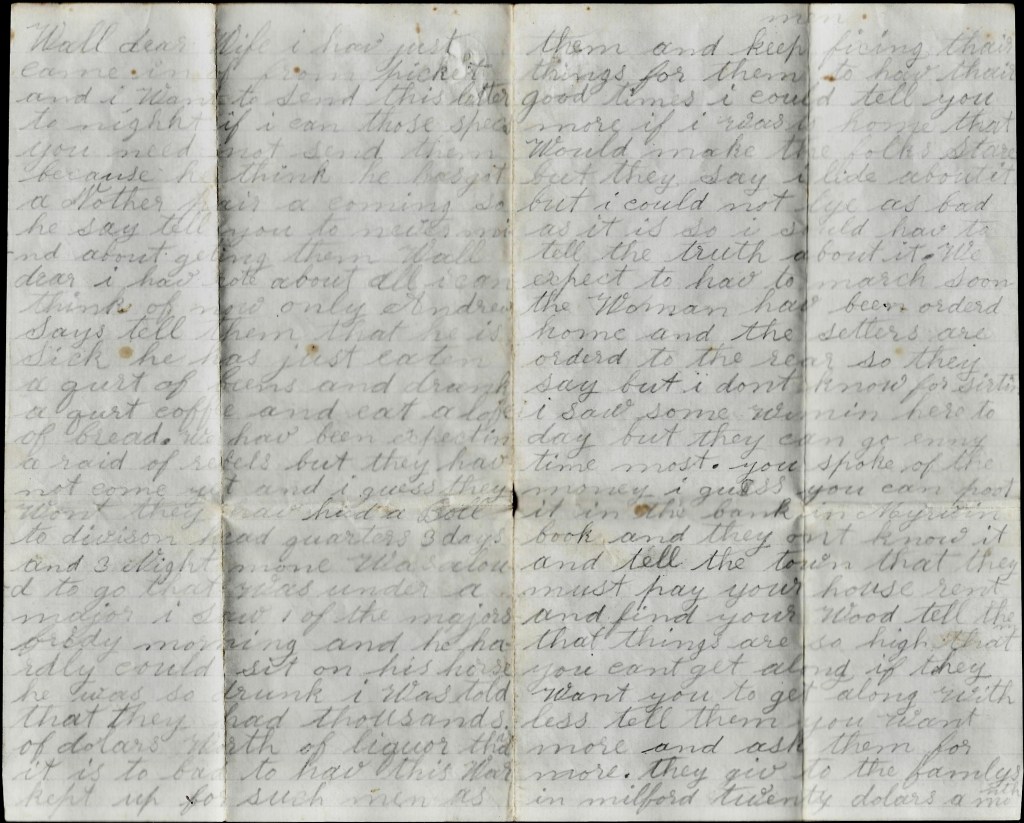 Wall dear Wife i hav just
came in of from picket
and i Want to send this letter
to nighht if i can those specs
you need not send them
because he think he bas git
a Nother pair a coming so
he say tell you to never mi
nd about geting them Wall
dear i hav rote about all i can
think of now only Andrew
Says tell them that he is
Sick he has just eaten
a qurt of beens and drunk
a qurt coffe and eat a lofe
of bread. We hav been expectin
a raid of rebels but they hav
not come yet and i guess they
Wont they hav had a
to divison head quarters 3 days
and 3 Night mone Was alou
d to go that Was under a
major i saw 1 of the majors
morning and he ha
rdly could sit on his horse
he was so drunk i Was told
that they had thousands
of dolars Worth of liquor thar
it is to bad to hav this War
kept up for such men as
men
them and keep fixing thair
things for them to hav thair
good times i could tell you
more if i was home that
Would make the folks Stare
but they say i lide about it
but i could not lye as bad
as it is so i should hav to
tell the truth about it. We
expect to hav to march soon
the Woman hav been orderd
home and the setlers are
orderd to the rear so they
say but i dont know for sirtin
i saw some Wimin here to
day but they can go enny
time most. you spoke of the
money i guess you can poot
it in the bank in
book and they ont know it
and tell the town that they
must pay your house rent
and find your Wood tell the
that things are so high that
you cant get along if they
Want you to get along With
less tell them you Want
more and ask them for
more. they giv to the familys
in milford twenty dolars a mo
nth